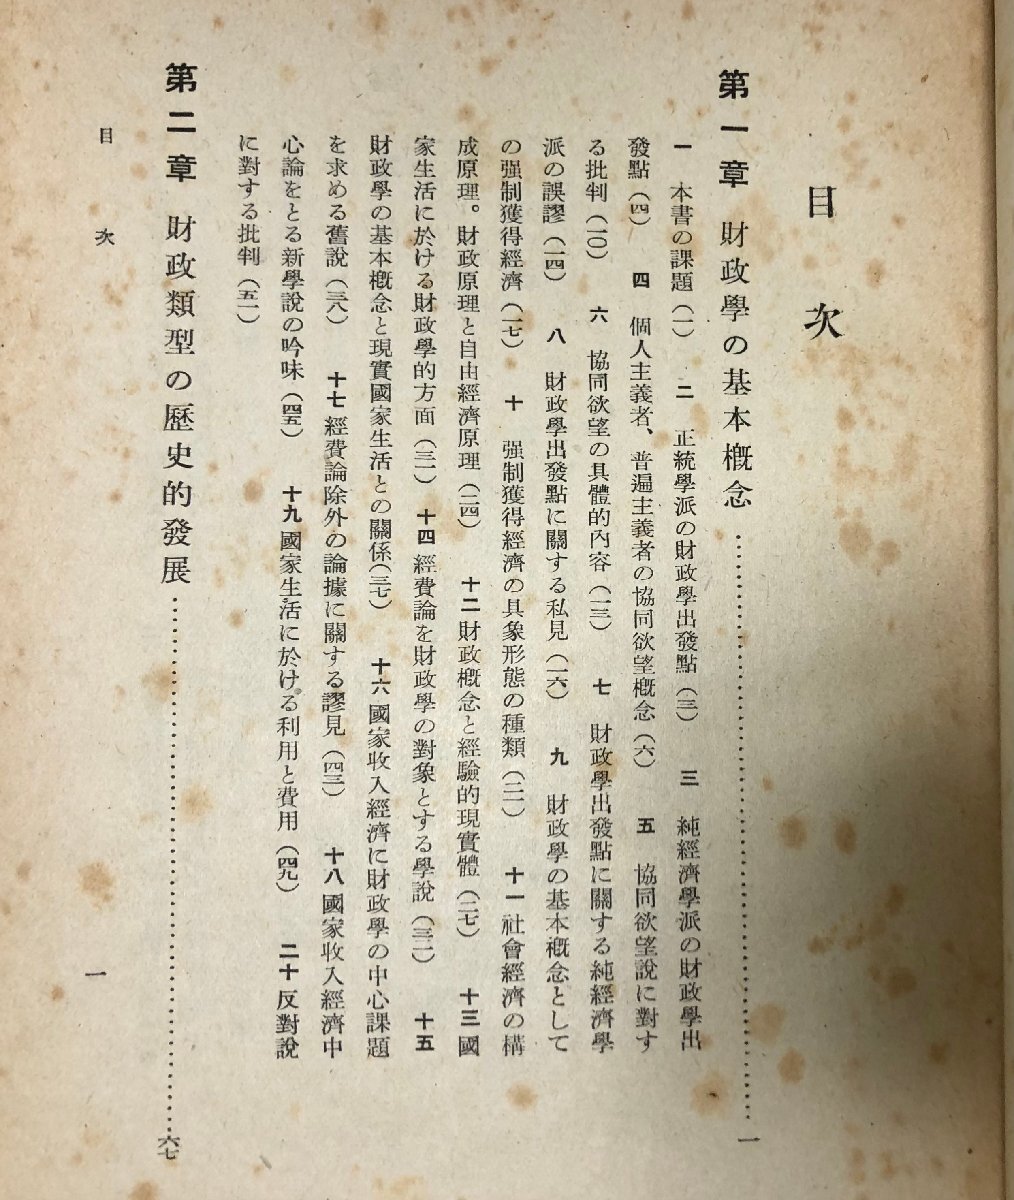 目次
第一章 財政學の基本概念……………………………一
一 本書の課題（一） 二 正統學派の財政學出發點（三） 三 純經濟學派の財政學出
發點（四） 四 個人主義者、普遍主義者の協同欲望概念（六） 五 協同欲望說に對す
る批判（一〇） 六 協同欲望の具體的內容（一三） 七 財政學出發點に關する純經濟學
派の誤謬（一四） 八 財政學出發點に關する私見（一六） 九 財政學の基本概念として
の强制獲得經濟（一七） 十 强制獲得經濟の具象形態の種類（二一） 十一 社會經濟の構
成原理。財政原理と自由經濟原理（二四） 十二 財政概念と經驗的現實體（二七） 十三 國
家生活に於ける財政學的方面（三一） 十四 經費論を財政學の對象とする學說（三二） 十五
財政學の基本概念と現實國家生活との關係（三七） 十六 國家收入經濟に財政學の中心課題
を求める舊說（三八） 十七 經費論除外の論據に關する謬見（四三） 十八 國家收入經濟中
心論をとる新學說の吟味（四五） 十九 國家生活に於ける利用と費用（四九） 二十 反對說
に對する批判（五一）
第二章 財政類型の歷史的發展……………………………六七
目次
一